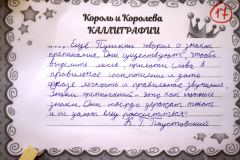 14
Король и Королева
КАЛЛИГРАФИИ
..., Ещё Пушкин говорил о знаках
препинания. Они существуют, чтобы
выделить мысль, привести слова в
правильное соотношение и дать
фразе лёгкость и правильное звучание.
Знаки препинания - это как нотные
знаки. Они твердо держат текст
и не дают ему рассыпаться.
К. Г. Паустовский